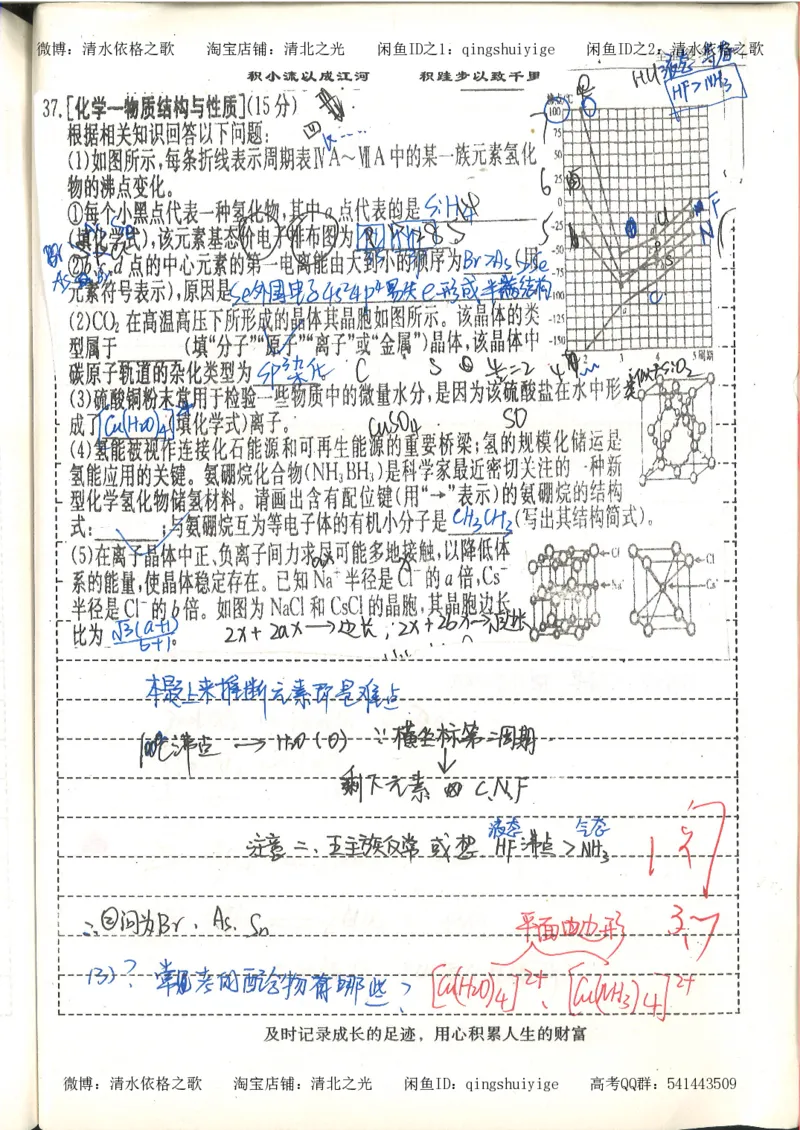 微博：清水依格之歌 淘宝店铺：清北之光 闲鱼ID之1：qingshuiyige 闲鱼ID之2：清水依格之歌
积小流以成江河 积跬步以致千里
HF>NH₃
37.[化学—物质结构与性质](15分)
根据相关知识回答以下问题:
(1)如图所示,每条折线表示周期表ⅣA～ⅦA中的某一族元素氢化
物的沸点变化。
①每个小黑点代表一种氢化物,其中a点代表的是 SiH₄
(填化学式),该元素基态价电子排布图为
②b、c、d点的中心元素的第一电离能由大到小的顺序为Br>As>Se(用
元素符号表示),原因是Se外围电子4s²4p⁴易失e⁻形成半满结构
(2)CO₂在高温高压下所形成的晶体其晶胞如图所示。该晶体的类
型属于 (填“分子”“原子”“离子”或“金属”)晶体,该晶体中
碳原子轨道的杂化类型为 sp³杂化
(3)硫酸铜粉末常用于检验一些物质中的微量水分,是因为该硫酸盐在水中形
成了[Cu(H₂O)₄]²⁺(填化学式)离子。
CuSO₄
(4)氢能被视作连接化石能源和可再生能源的重要桥梁;氢的规模化储运是
氢能应用的关键。氨硼烷化合物(NH₃BH₃)是科学家最近密切关注的一种新
型化学氢化物储氢材料。请画出含有配位键(用“→”表示)的氨硼烷的结构
式: ;与氨硼烷互为等电子体的有机小分子是 CH₃CH₃(写出其结构简式)。
(5)在离子晶体中正、负离子间力求尽可能多地接触,以降低体
系的能量,使晶体稳定存在。已知Na⁺半径是Cl⁻的a倍,Cs⁺
半径是Cl⁻的b倍。如图为NaCl和CsCl的晶胞,其晶胞边长
比为 √3(a+1)/b+1。
2x+2ax→边长;2x+2bx→
Cl⁻
Na⁺
Cl⁻
Cs⁺
本题上来推断元素即是难点
100℃沸点→H₂O(O) ∵横坐标第二周期
剩下元素 C、N、F
液态 气态
注意二、五主族反常 或想 HF沸点>NH₃
∴②问为Br、As、Sn
平面四边形
(3)? 常见考的配合物有哪些? [Cu(H₂O)₄]²⁺、[Cu(NH₃)₄]²⁺
及时记录成长的足迹，用心积累人生的财富
微博：清水依格之歌 淘宝店铺：清北之光 闲鱼ID：qingshuiyige 高考QQ群：541443509